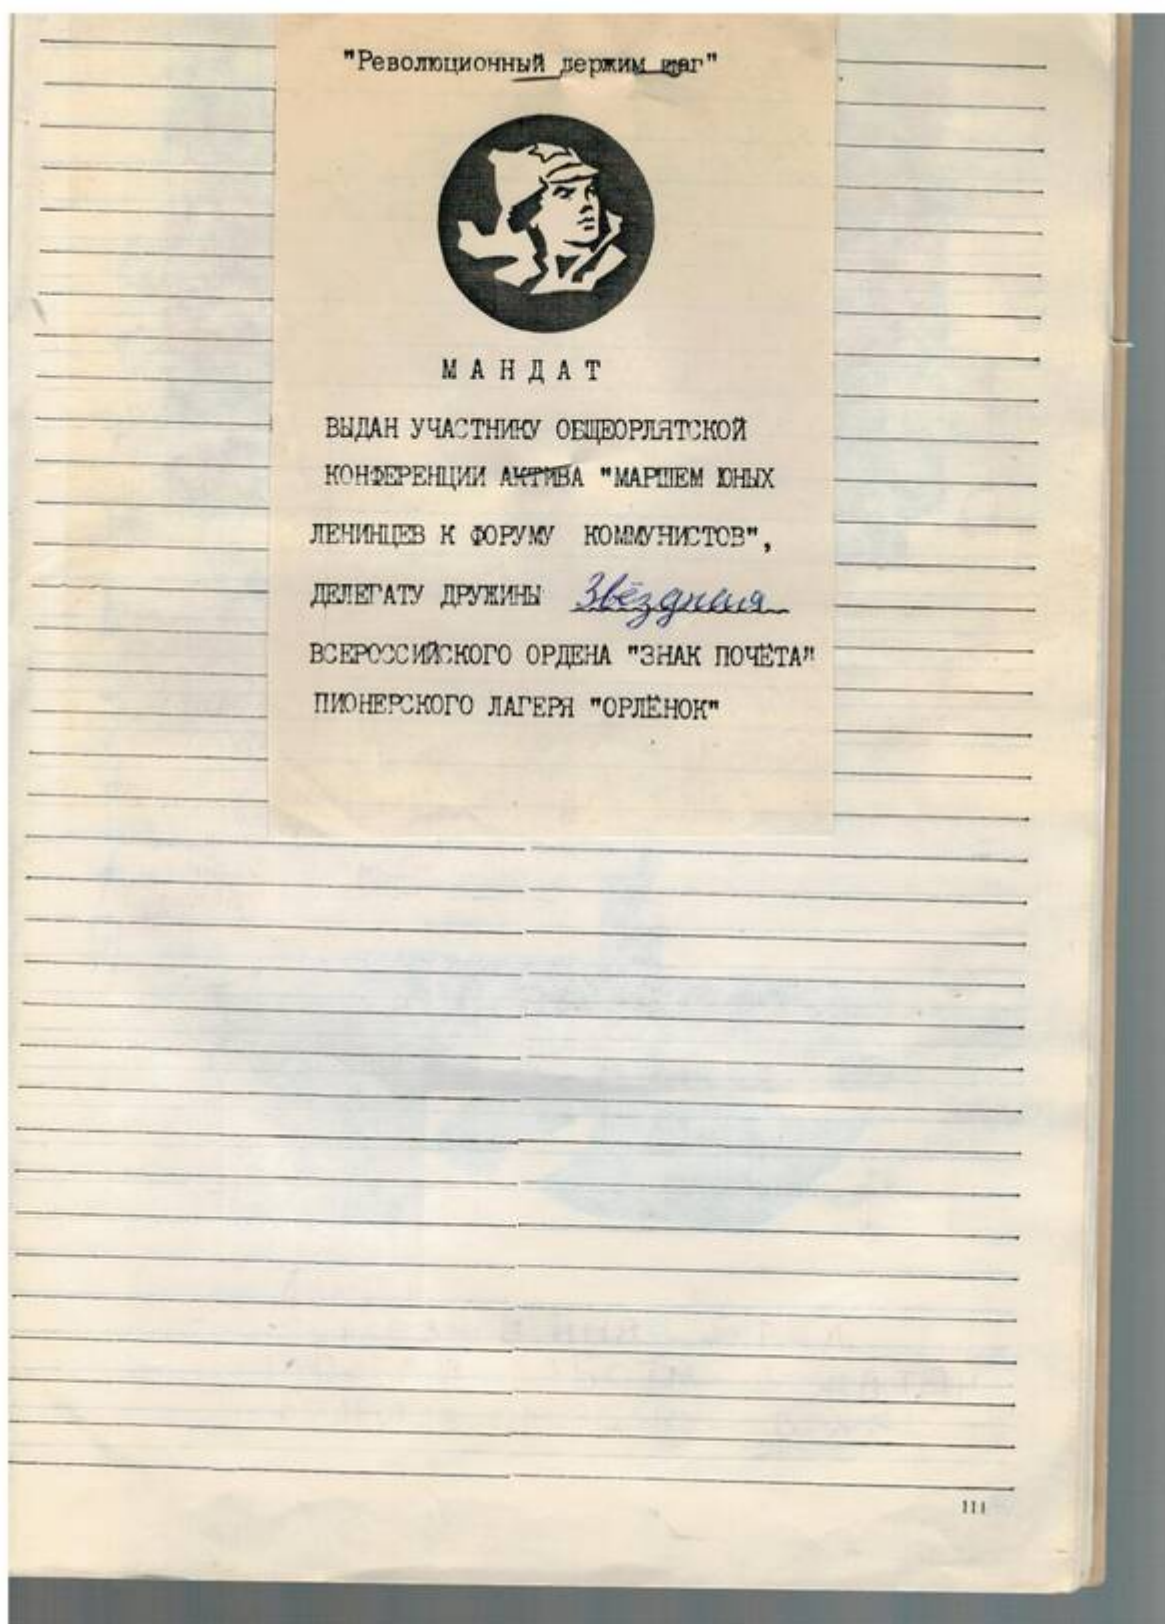 "Революционный держим шаг"
МАНДАТ
ВЫДАН УЧАСТНИКУ ОБЩЕОРЛЯТСКОЙ
КОНФЕРЕНЦИИ АКТИВА "МАРШЕМ ЮНЫХ
ЛЕНИНЦЕВ К ФОРУМУ КОММУНИСТОВ",
ДЕЛЕГАТУ ДРУЖИНЫ Звёздная
ВСЕРОССИЙСКОГО ОРДЕНА "ЗНАК ПОЧЁТА"
ПИОНЕРСКОГО ЛАГЕРЯ "ОРЛЁНОК"
111